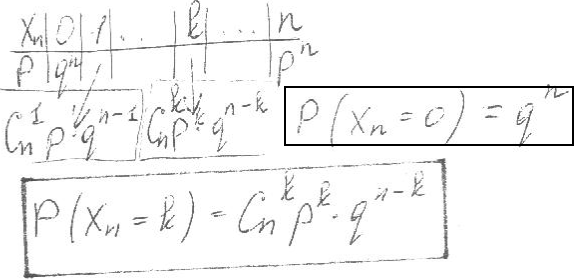 Xₙ | 0 | 1 | ... | k | ... | n
P | qⁿ | | | | | pⁿ
Cₙ¹ p·qⁿ⁻¹ Cₙᵏ pᵏ·qⁿ⁻ᵏ P(Xₙ = 0) = qⁿ
P(Xₙ = k) = Cₙᵏ pᵏ·qⁿ⁻ᵏ